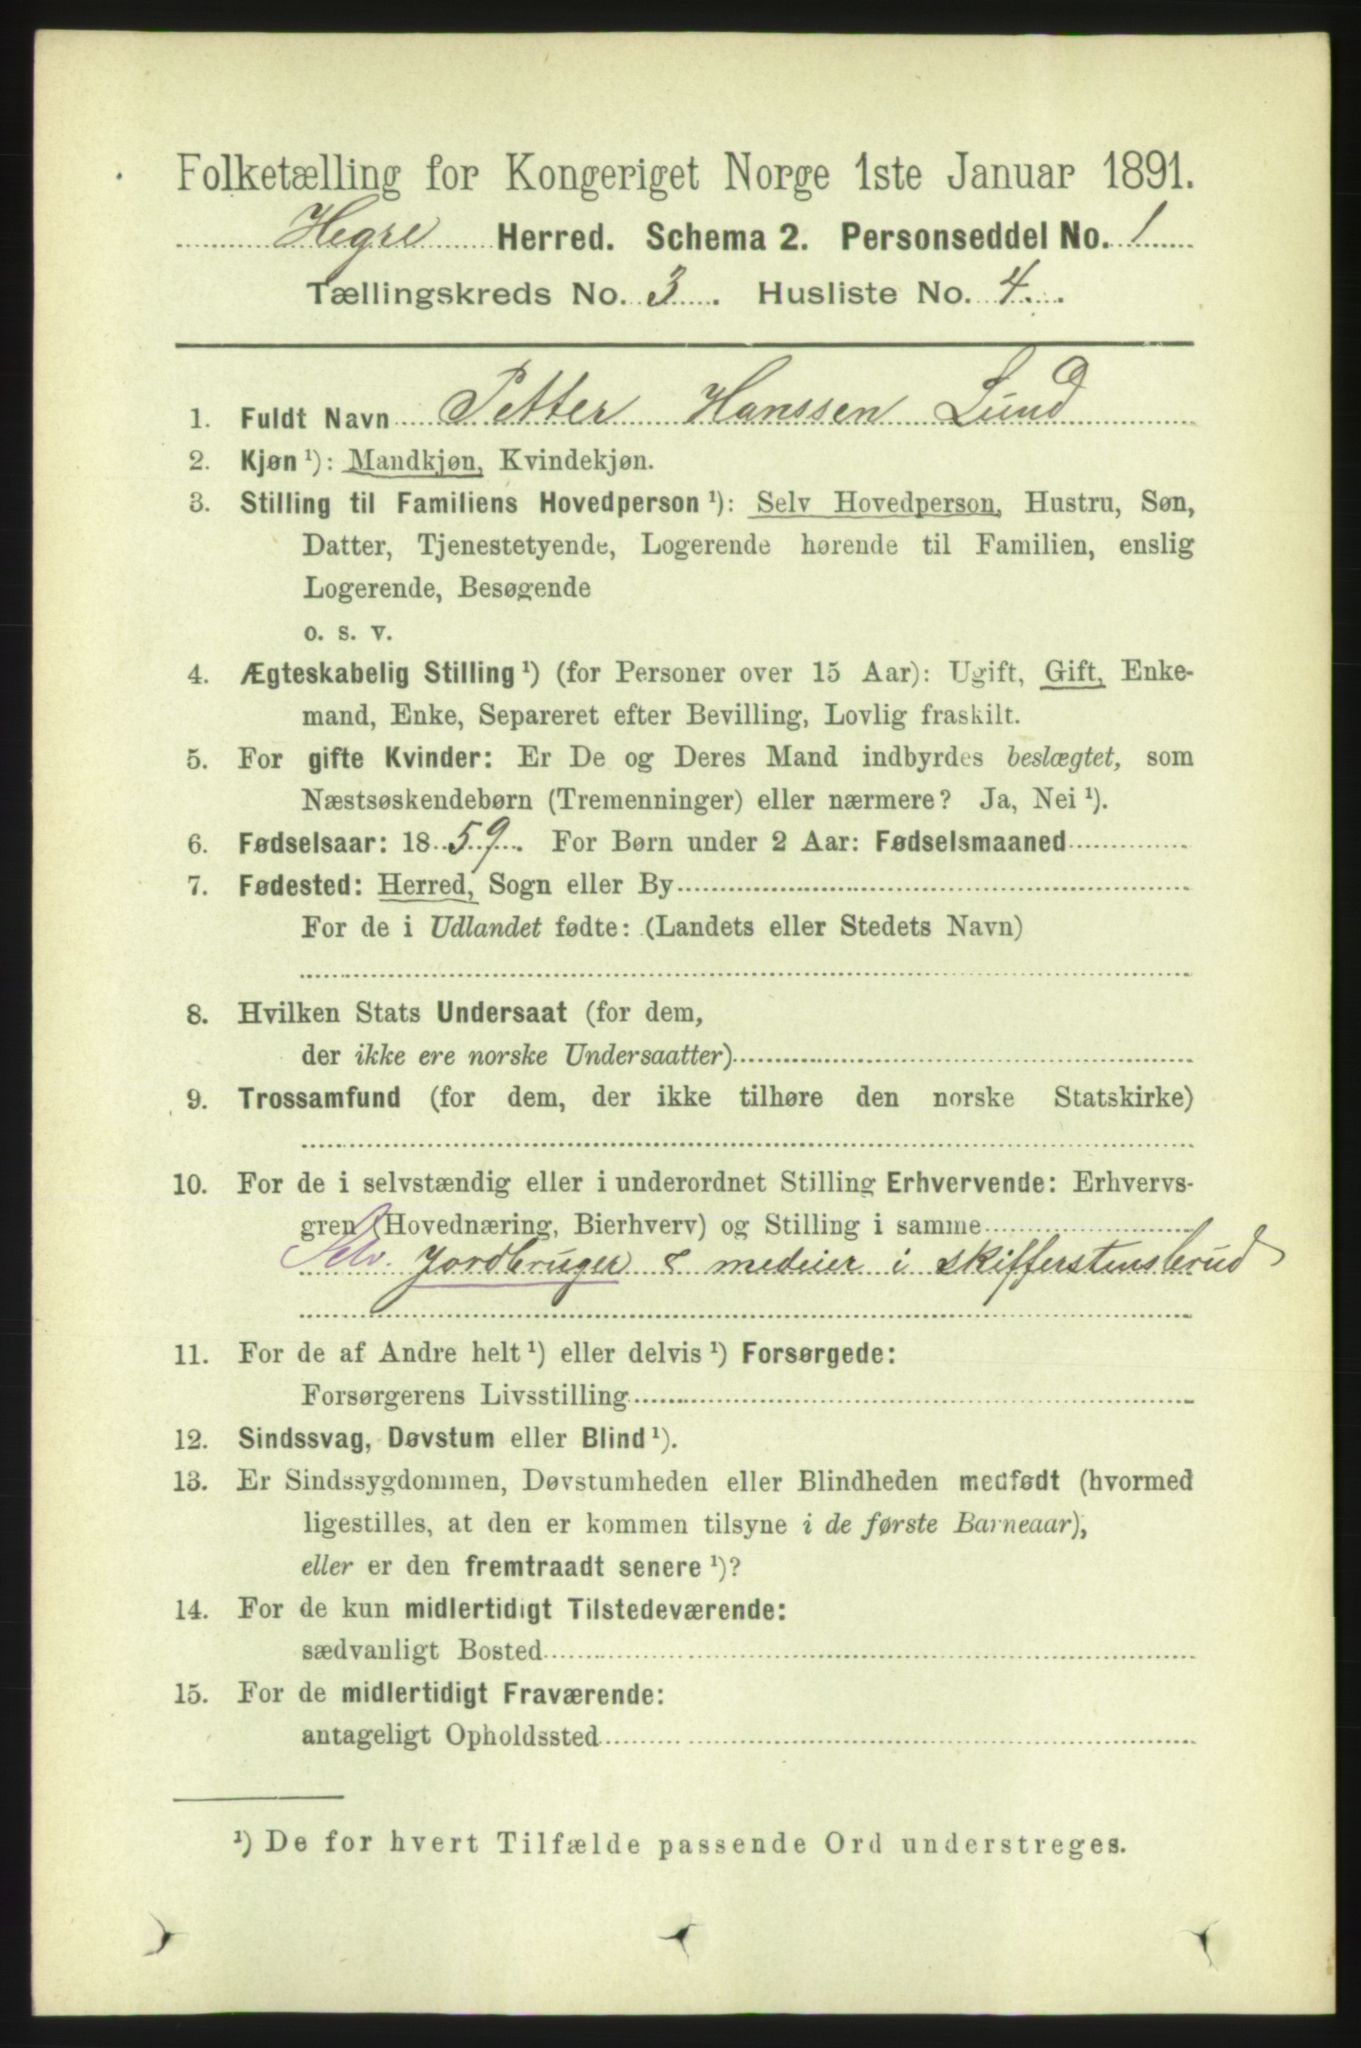 Folketælling for Kongeriget Norge 1ste Januar 1891.
Hegre Herred. Schema 2. Personseddel No. 1
Tællingskreds No. 3. Husliste No. 4.
1. Fuldt Navn Petter Hanssen Lund
2. Kjøn ¹): Mandkjøn, Kvindekjøn.
3. Stilling til Familiens Hovedperson ¹): Selv Hovedperson, Hustru, Søn,
Datter, Tjenestetyende, Logerende hørende til Familien, enslig
Logerende, Besøgende
o. s. v.
4. Ægteskabelig Stilling ¹) (for Personer over 15 Aar): Ugift, Gift, Enke-
mand, Enke, Separeret efter Bevilling, Lovlig fraskilt.
5. For gifte Kvinder: Er De og Deres Mand indbyrdes beslægtet, som
Næstsøskendebørn (Tremenninger) eller nærmere? Ja, Nei ¹).
6. Fødselsaar: 1859. For Børn under 2 Aar: Fødselsmaaned
7. Fødested: Herred, Sogn eller By
For de i Udlandet fødte: (Landets eller Stedets Navn)
8. Hvilken Stats Undersaat (for dem,
der ikke ere norske Undersaatter)
9. Trossamfund (for dem, der ikke tilhøre den norske Statskirke)
10. For de i selvstændig eller i underordnet Stilling Erhvervende: Erhvervs-
gren (Hovednæring, Bierhverv) og Stilling i samme
Selv. Jordbruger & medeier i skifferstensbrud
11. For de af Andre helt ¹) eller delvis ¹) Forsørgede:
Forsørgerens Livsstilling
12. Sindssvag, Døvstum eller Blind ¹).
13. Er Sindssygdommen, Døvstumheden eller Blindheden medfødt (hvormed
ligestilles, at den er kommen tilsyne i de første Barneaar),
eller er den fremtraadt senere ¹)?
14. For de kun midlertidigt Tilstedeværende:
sædvanligt Bosted
15. For de midlertidigt Fraværende:
antageligt Opholdssted
¹) De for hvert Tilfælde passende Ord understreges.